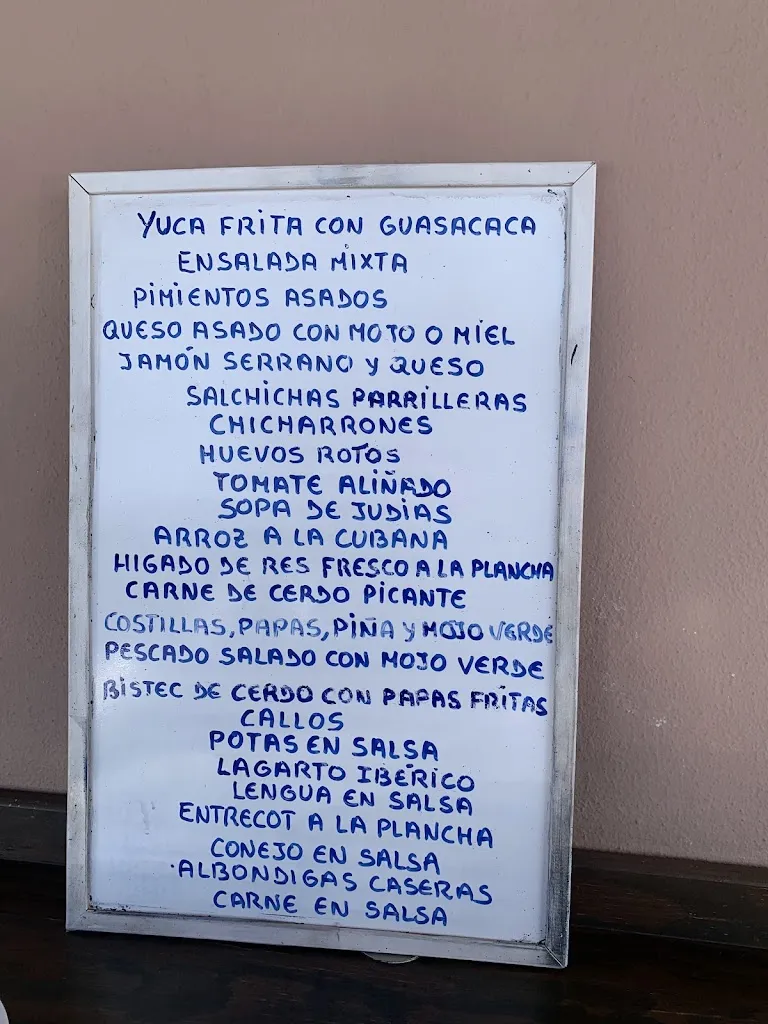 YUCA FRITA CON GUASACACA
ENSALADA MIXTA
PIMIENTOS ASADOS
QUESO ASADO CON MOTO O MIEL
JAMÓN SERRANO Y QUESO
SALCHICHAS PARRILLERAS
CHICHARRONES
HUEVOS ROTOS
TOMATE ALIÑADO
SOPA DE JUDIAS
ARROZ A LA CUBANA
HIGADO DE RES FRESCO A LA PLANCHA
CARNE DE CERDO PICANTE
COSTILLAS, PAPAS, PIÑA Y MOJO VERDE
PESCADO SALADO CON MOJO VERDE
BISTEC DE CERDO CON PAPAS FRITAS
CALLOS
POTAS EN SALSA
LAGARTO IBÉRICO
LENGUA EN SALSA
ENTRECOT A LA PLANCHA
CONEJO EN SALSA
ALBONDIGAS CASERAS
CARNE EN SALSA